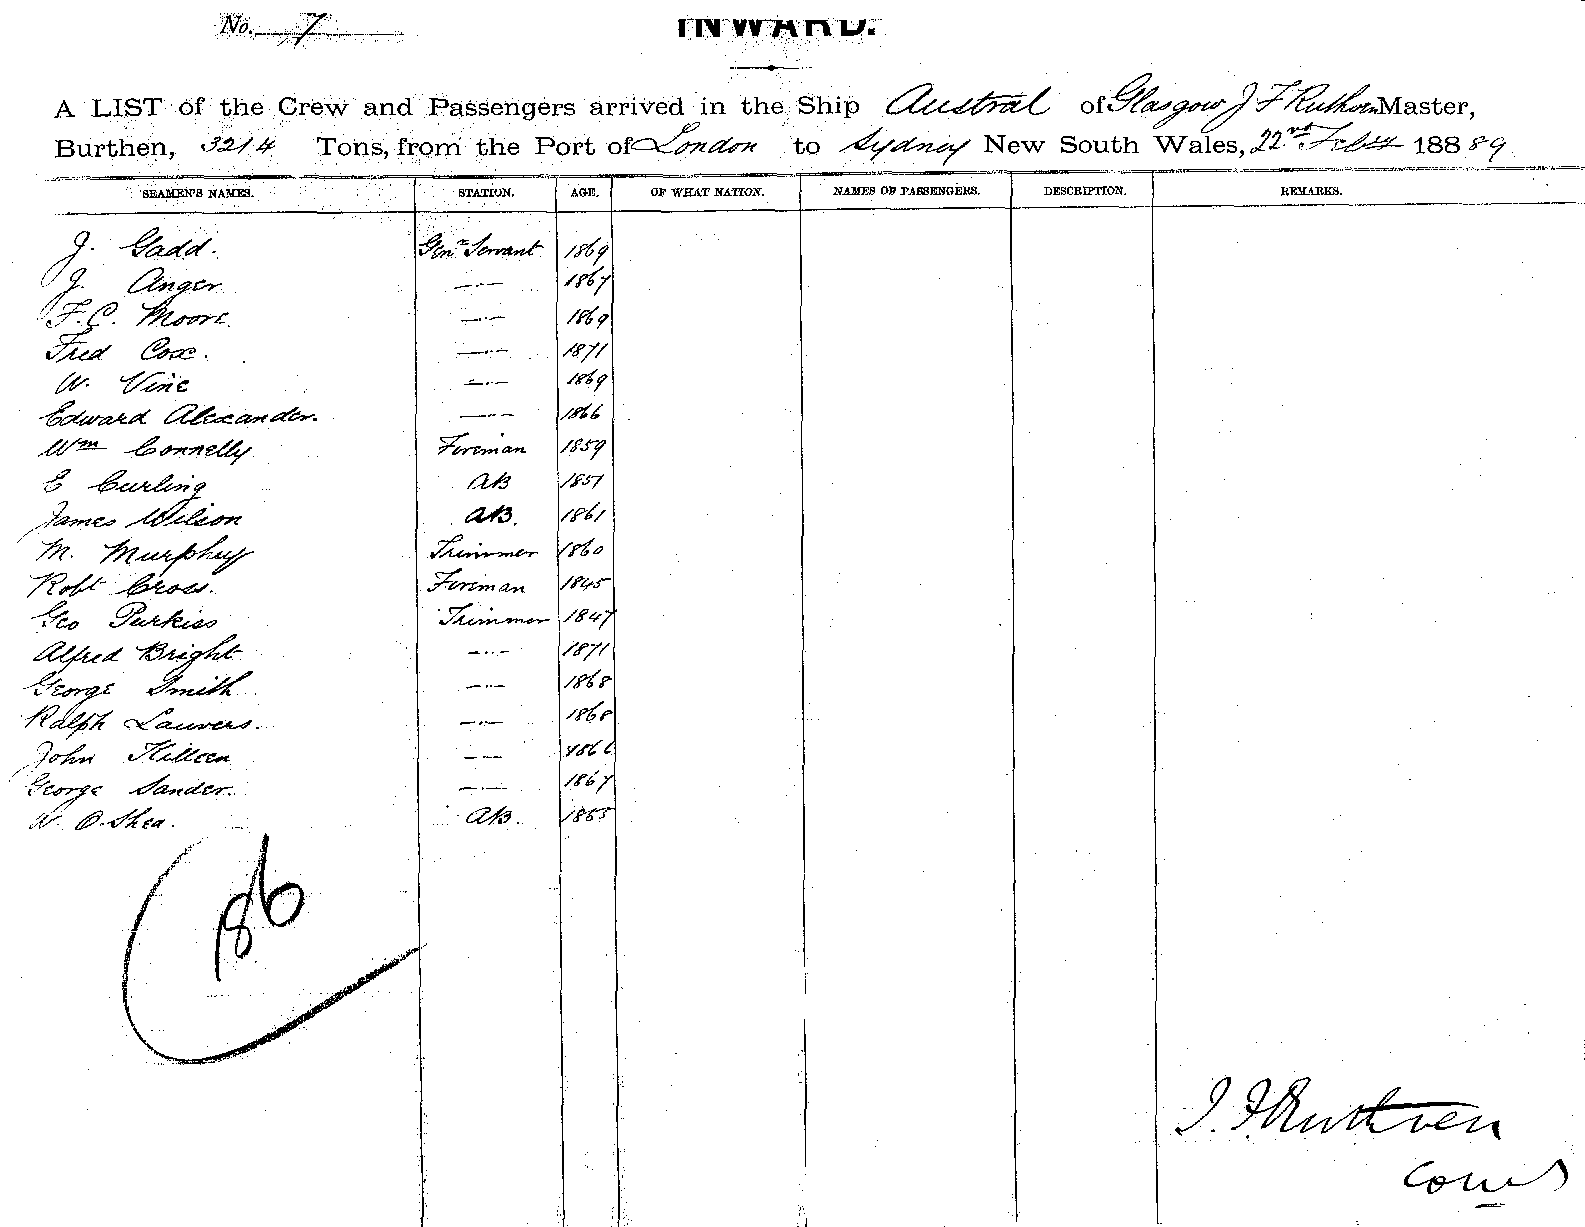 No. 7
INWARD.
A LIST of the Crew and Passengers arrived in the Ship Austral of Glasgow J F Ruthven Master,
Burthen, 3214 Tons, from the Port of London to Sydney New South Wales, 22nd Feby 188 89
SEAMEN'S NAMES. STATION. AGE. OF WHAT NATION. NAMES OF PASSENGERS. DESCRIPTION. REMARKS.
J. Gadd. Genl Servant 1869
J. Anger —"— 1867
F. C. Moore. —"— 1869
Fred Cox. —"— 1871
W. Vine —"— 1869
Edward Alexander. —"— 1866
Wm Connelly Fireman 1859
E Curling AB 1851
James Wilson AB. 1861
M. Murphy Trimmer 1860
Robt Cross. Fireman 1845
Geo Purkiss Trimmer 1847
Alfred Bright —"— 1871
George Smith —"— 1868
Ralph Lauvers. —"— 1868
John Killeen —"— 1866
George Sander. —"— 1867
W. O.Shea. AB.
186
J. F Ruthven